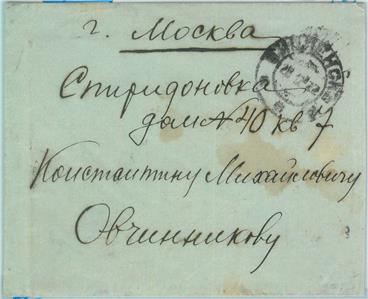 г. Москва
Спиридоновка
дом № 40 кв 7
Константину Михайловичу
Овчинникову